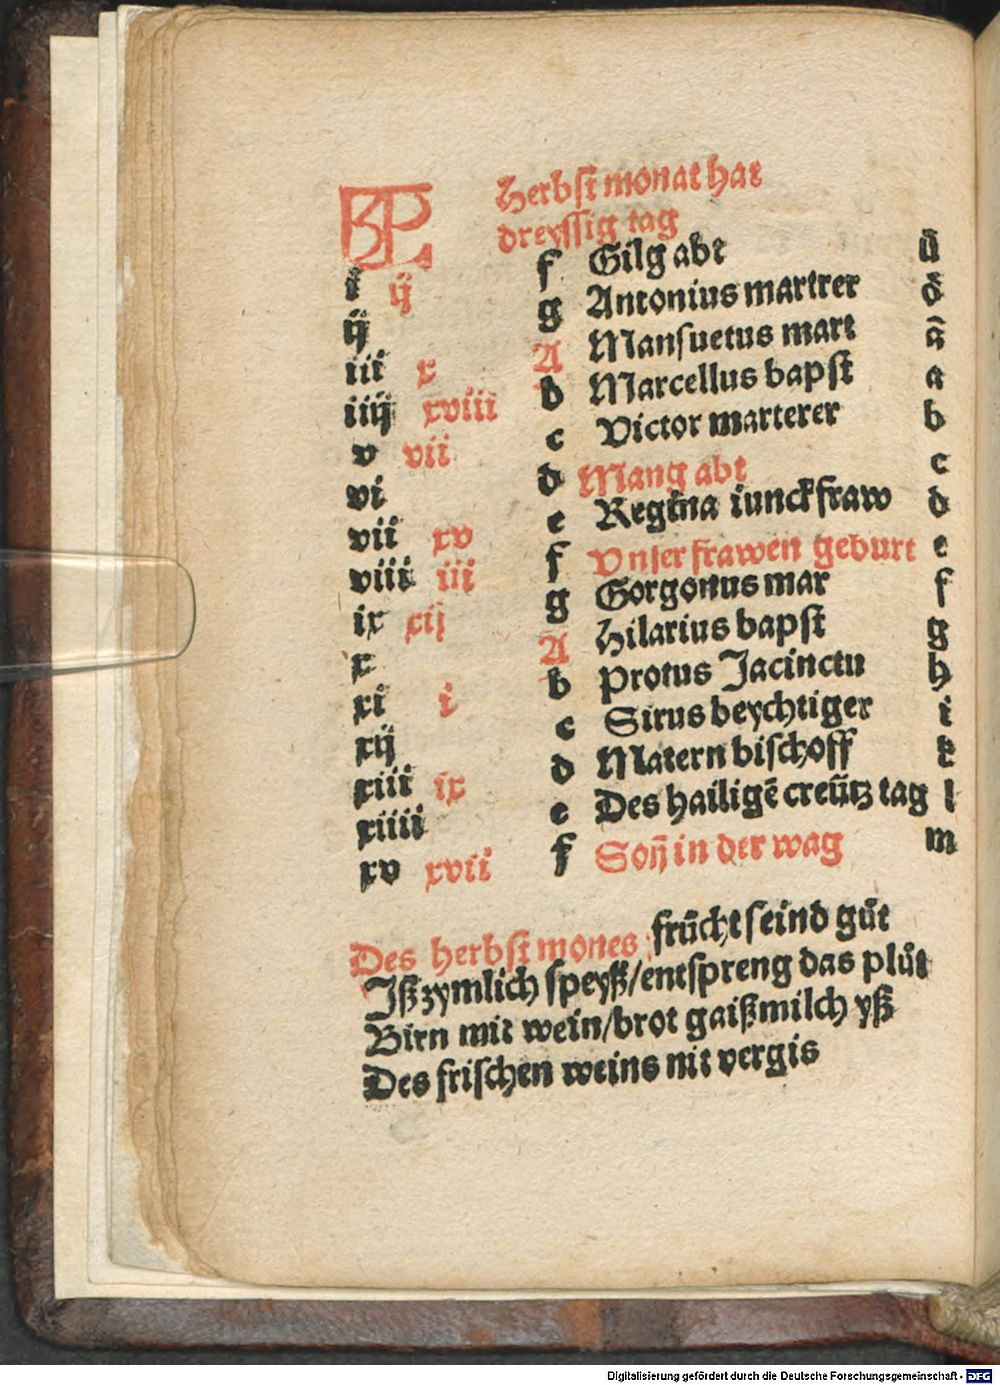 KL Herbst monat hat
dreyssig tag
i ij f Gilg abt ü
ij g Antonius martrer ö
iii x A Mansuetus mart ā
iiij xviii b Marcellus bapst a
v vii c Victor marterer b
vi d Mang abt c
vii xv e Regina iunckfraw d
viii iii f Vnser frawen geburt e
ix xij g Gorgonus mar f
x A Hilarius bapst g
xi i b Protus Jacinctu h
xij c Sirus beychtiger i
xiii ix d Matern bischoff k
xiiii e Des hailigē creütz tag l
xv xvii f Soñ in der wag m
Des herbst mones frücht seind gůt
Jß zymlich speyß/entspreng das plůt
Birn mit wein/brot gaißmilch yß
Des frischen weins nit vergis
Digitalisierung gefördert durch die Deutsche Forschungsgemeinschaft - DFG